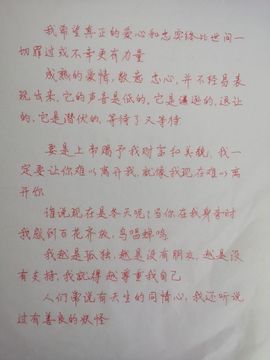 我希望真正的爱心和忠实终比世间一
切罪过或不幸更有力量
成熟的爱情,敬意、忠心,并不轻易表
现出来,它的声音是低的,它是谦逊的,退让
的,它是潜伏的,等待了又等待
要是上帝赐予我财富和美貌,我一
定要让你难以离开我,就像我现在难以离
开你
谁说现在是冬天呢?当你在我身旁时
我感到百花齐放,鸟唱蝉鸣
我越是孤独,越是没有朋友,越是没
有支持,我就得越尊重我自己
人们常说有天生的同情心,我还听说
过有善良的妖怪